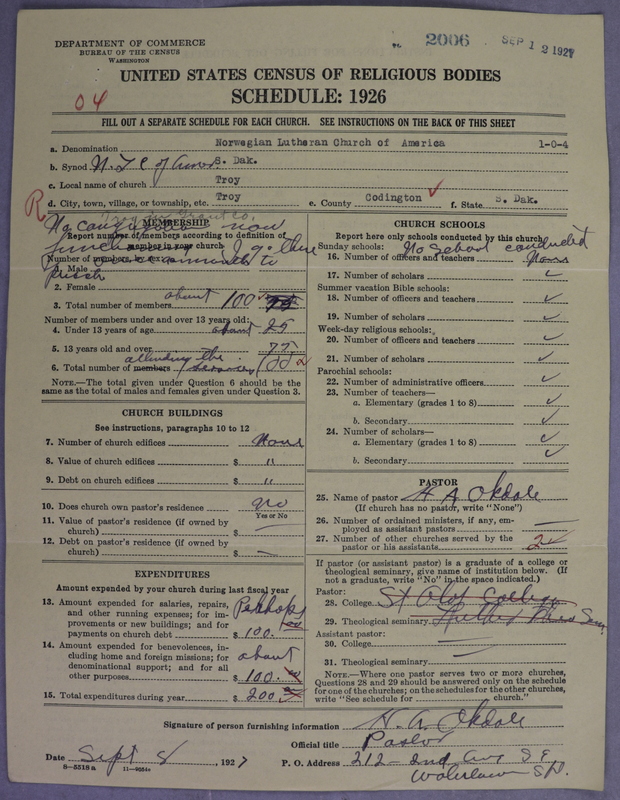 DEPARTMENT OF COMMERCE
BUREAU OF THE CENSUS
WASHINGTON
2006 SEP 12 1927
UNITED STATES CENSUS OF RELIGIOUS BODIES
SCHEDULE: 1926
04
FILL OUT A SEPARATE SCHEDULE FOR EACH CHURCH. SEE INSTRUCTIONS ON THE BACK OF THIS SHEET
a. Denomination Norwegian Lutheran Church of America 1-0-4
b. Synod N.L.C. of Amer S. Dak.
c. Local name of church Troy
d. City, town, village, or township, etc. Troy e. County Codington f. State S. Dak.
R
Troy in Grant Co.
MEMBERSHIP
No congregation now
Report number of members according to definition of
member in your church
functioning I go there
Number of members, by sex:
occasionally to
1. Male
preach
2. Female
3. Total number of members about 100
Number of members under and over 13 years old:
4. Under 13 years of age about 25
5. 13 years old and over 75
attending the
6. Total number of members services 100
NOTE.—The total given under Question 6 should be the
same as the total of males and females given under Question 3.
CHURCH BUILDINGS
See instructions, paragraphs 10 to 12
7. Number of church edifices None
8. Value of church edifices $ "
9. Debt on church edifices $ "
10. Does church own pastor's residence No
Yes or No
11. Value of pastor's residence (if owned by
church) $ —
12. Debt on pastor's residence (if owned by
church) $ —
EXPENDITURES
Amount expended by your church during last fiscal year
13. Amount expended for salaries, repairs,
and other running expenses; for im-
provements or new buildings; and for
payments on church debt Perhaps $ 100.
14. Amount expended for benevolences, in-
cluding home and foreign missions; for
denominational support; and for all
other purposes about $ 100.
15. Total expenditures during year $ 200
CHURCH SCHOOLS
Report here only schools conducted by this church
Sunday schools: No school conducted
16. Number of officers and teachers None
17. Number of scholars ✓
Summer vacation Bible schools:
18. Number of officers and teachers ✓
19. Number of scholars ✓
Week-day religious schools:
20. Number of officers and teachers ✓
21. Number of scholars ✓
Parochial schools:
22. Number of administrative officers ✓
23. Number of teachers—
a. Elementary (grades 1 to 8) ✓
b. Secondary ✓
24. Number of scholars—
a. Elementary (grades 1 to 8) ✓
b. Secondary ✓
PASTOR
25. Name of pastor H A Okdale
(If church has no pastor, write "None")
26. Number of ordained ministers, if any, em-
ployed as assistant pastors —
27. Number of other churches served by the
pastor or his assistants 2
If pastor (or assistant pastor) is a graduate of a college or
theological seminary, give name of institution below. (If
not a graduate, write "No" in the space indicated.)
Pastor:
28. College St Olaf College
29. Theological seminary Luther Theo Sem
Assistant pastor:
30. College —
31. Theological seminary —
NOTE.—Where one pastor serves two or more churches,
Questions 28 and 29 should be answered only on the schedule
for one of the churches; on the schedules for the other churches,
write "See schedule for church."
Signature of person furnishing information H. A. Okdale
Official title Pastor
Date Sept 8, 1927 P. O. Address 212 - 2nd Ave S E
Watertown S.D.
8—5318 a 11—9054